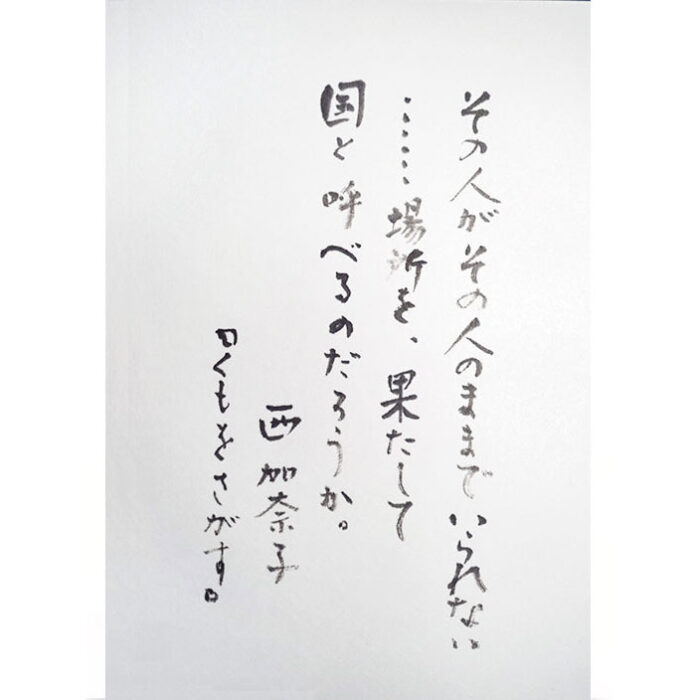 その人がその人のままでいられない
……場所を、果たして
国と呼べるのだろうか。
西加奈子
「くもをさがす」